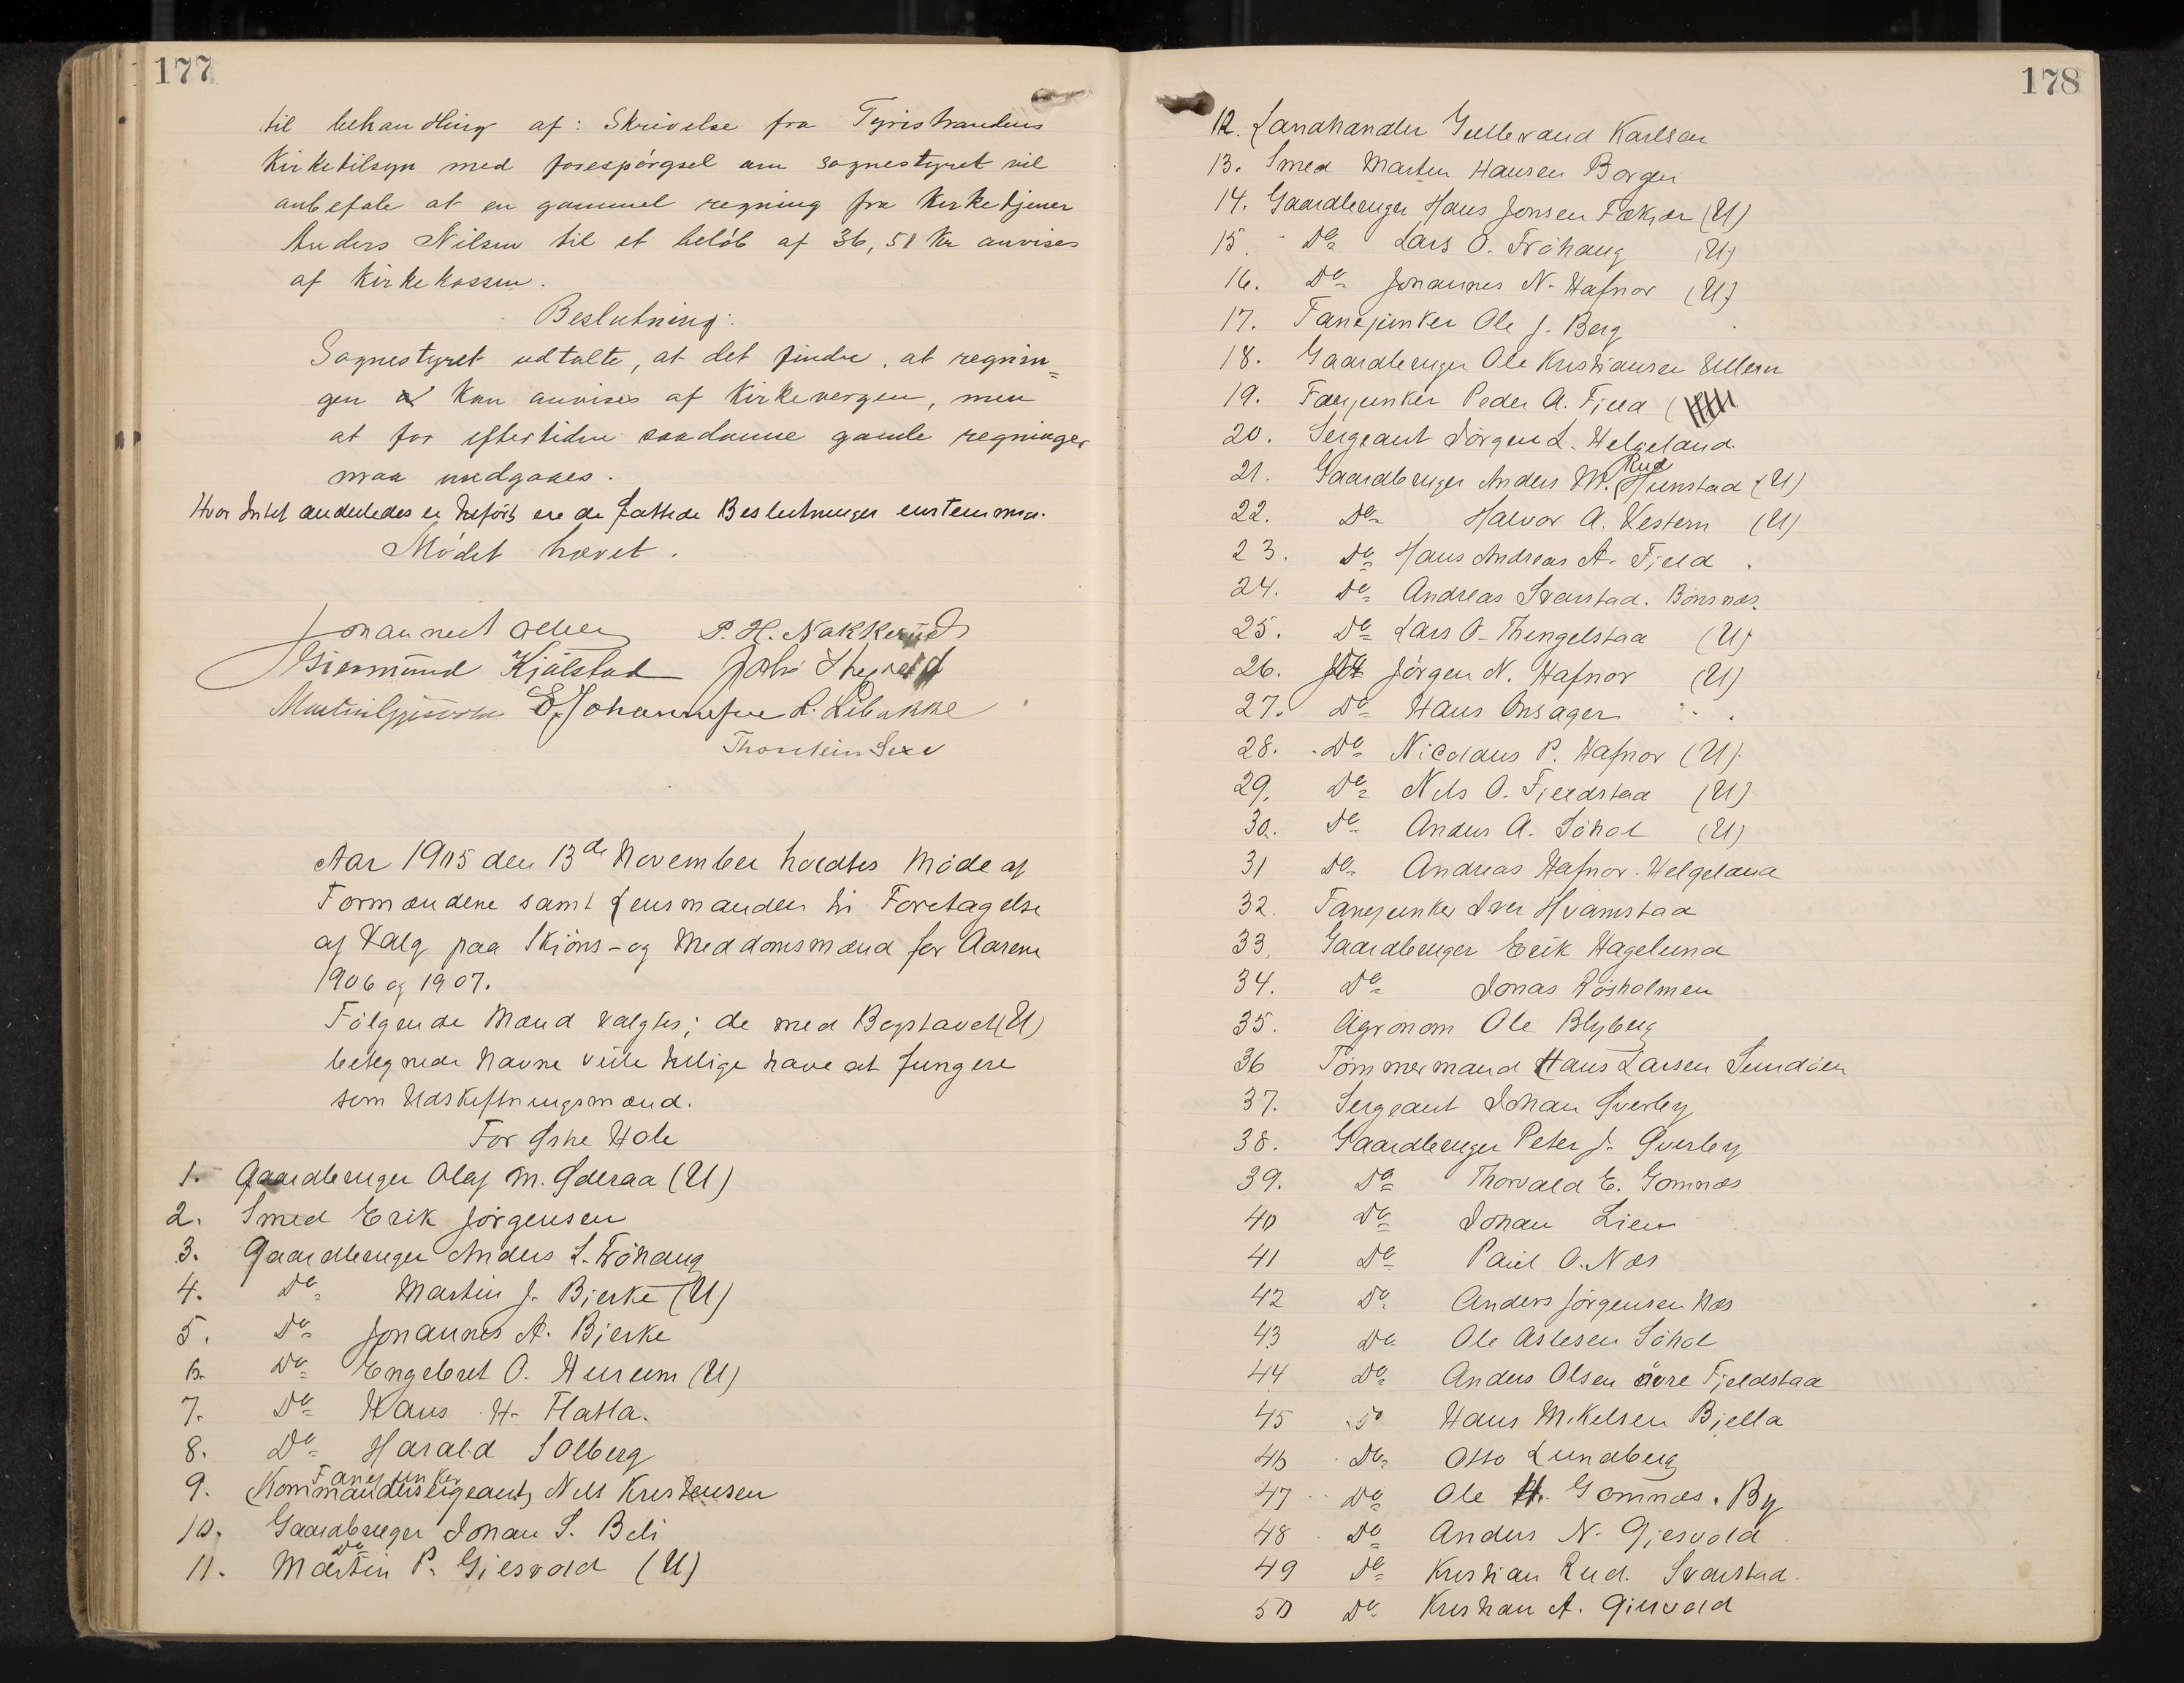 177
til behandling af: Skrivelse fra Tyristrandens
Kirketilsyn med forespørgsel om sognestyret vil
anbefale at en gammel regning fra Kirketjener
Anders Nilsen til et beløb af 36,51 Kr anvises
af Kirkekassen.
Beslutning:
Sognestyret udtalte, at det finder, at regnin=
gen kan anvises af Kirkevergen, men
at for eftertiden saadanne gamle regninger
maa undgaaes.
Hvor Intet anderledes er tilført ere de fattede Beslutninger enstemmi.
Mødet hævet.
P. H. Nakkerud
Giermund Kjølstad
E. Johannesen L. Libakke
Thorstein
Aar 1905 den 13de November holdtes Møde af
Formændene samt Lensmanden til Foretagelse
af Valg paa Skjøns- og Meddomsmænd for Aarene
1906 og 1907.
Følgende Mænd valgtes; de med Bogstavet (U)
betegnede Navne ville tillige have at fungere
som Udskiftningsmænd.
For Østre Hole
1. Gaardbruger Olaf M. Gderaa (U)
2. Smed Erik Jørgensen
3. Gaardbruger Anders L. Frøhaug
4. Do Martin J. Bjerke (U)
5. Do Johannes A. Bjerke
6. Do Engebret O. Hurum (U)
7. Do Hans H. Flatla.
8. Do Harald Solberg
Fanejunker
9. (Kommandersergeant) Nels Kristensen
10. Gaardbruger Johan S. Beli
Do
11. Martin P. Gjesvold (U)
178
12. Landhandler Gullerand Karlsen
13. Smed Marten Hansen Borgen
14. Gaardbruger Hans Jonsen Fækjær (U)
15. Do Lars O. Frøhaug (U)
16. Do Johannes N. Hafnor (U)
17. Fanejunker Ole J. Berg
18. Gaardbruger Ole Kristiansen Ullern
19. Fanejunker Peder A. Fjeld
20. Sergeant Jørgen L. Helgeland
Rud
21. Gaardbruger Anders M. (Hunstad (U)
22. Do Halvor A. Vestern (U)
23. Do Hans Andreas A. Fjeld
24. Do Andreas Svarstad. Bønsnæs
25. Do Lars O. Thingelstad (U)
26. Jørgen N. Hafnor (U)
27. Do Hans Onsager
28. Do Nicolaus P. Hafnor (U)
29. Do Nils O. Fjeldstad (U)
30. Do Anders A. Søhol (U)
31 Do Andreas Hafnor. Helgeland
32. Fanejunker Iver Hvamstad
33. Gaardbruger Erik Hagelund
34. Do Jonas Røsholmen
35. Agronom Ole Blyberg
36 Tømmermand Hans Larsen Sundøen
37. Sergeant Johan Gverby
38. Gaardbruger Peter J. Gverby
39. Do Thorvald E. Gomnæs
40 Do Johan Lien
41 Do Paul O. Næs
42 Do Anders Jørgensen Næs
43 Do Ole Aslesen Søhol
44 Do Anders Olsen øvre Fjeldstad
45 Do Hans Mikelsen Bjella
46 Do Otto Lundberg
47 Do Ole H. Gomnæs. By
48 Do Anders N. Gjesvold
49 Do Kristian Rud. Svarstad.
50 Do Kristian A. Gjesvold